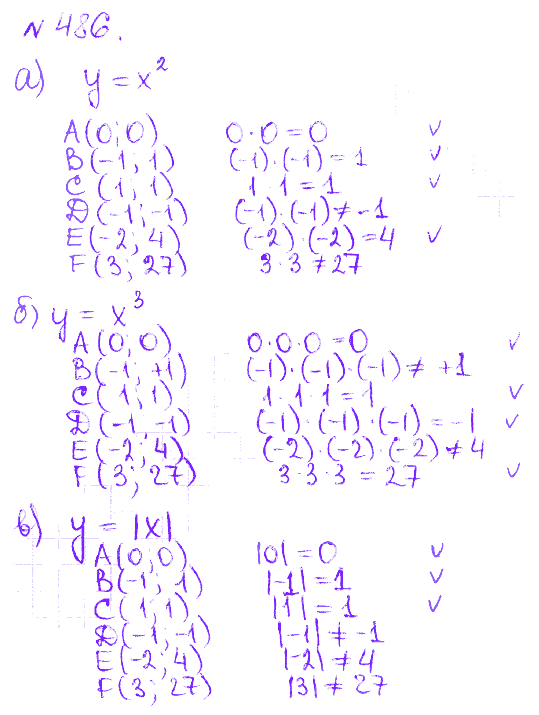 № 486.
а) y = x²
A(0; 0) 0·0=0 ✓
B(-1; 1) (-1)·(-1)=1 ✓
C(1; 1) 1·1=1 ✓
D(-1; -1) (-1)·(-1)≠-1
E(-2; 4) (-2)·(-2)=4 ✓
F(3; 27) 3·3≠27
б) y = x³
A(0; 0) 0·0·0=0 ✓
B(-1; +1) (-1)·(-1)·(-1)≠+1
C(1; 1) 1·1·1=1 ✓
D(-1; -1) (-1)·(-1)·(-1)=-1 ✓
E(-2; 4) (-2)·(-2)·(-2)≠4
F(3; 27) 3·3·3=27 ✓
в) y = |x|
A(0; 0) |0|=0 ✓
B(-1; 1) |-1|=1 ✓
C(1; 1) |1|=1 ✓
D(-1; -1) |-1|≠-1
E(-2; 4) |-2|≠4
F(3; 27) |3|≠27